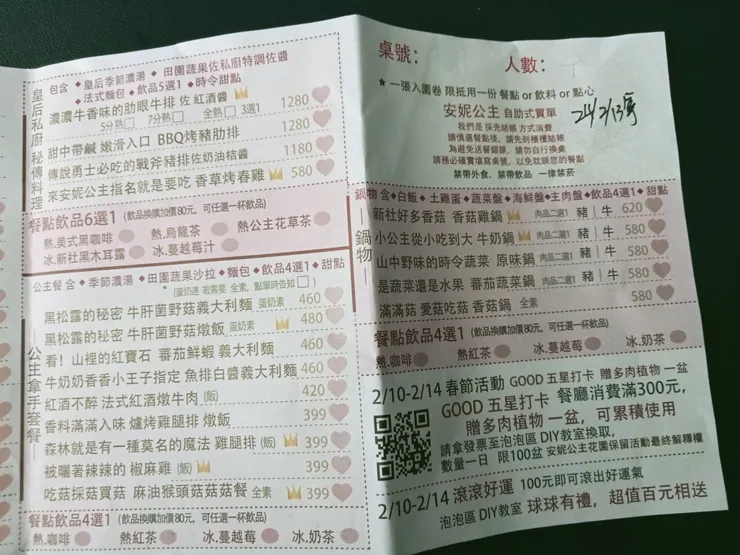 皇后私廚秘傳料理
包含 ◆ 皇后季節濃湯 ◆ 田園蔬果佐私廚特調佐醬
◆ 法式麵包 ◆ 飲品5選1 ◆ 時令甜點
濃濃牛香味的肋眼牛排 佐 紅酒醬 1280
5分熟 7分熟 全熟 3選1
甜中帶鹹 嫩滑入口 BBQ烤豬肋排 1280
傳說勇士必吃的戰斧豬排佐奶油桔醬 1180
來安妮公主指名就是要吃 香草烤春雞 580
餐點飲品6選1 (飲品換購加價80元, 可任選一杯飲品)
熱.美式黑咖啡 熱.烏龍茶 熱公主花草茶
冰.新社黑木耳露 冰.蔓越莓汁
公主拿手套餐
公主餐 含 ◆ 季節濃湯 ◆ 田園蔬果沙拉 ◆ 麵包 ◆ 飲品4選1 ◆ 甜點
(蛋奶速 若需要 全素, 點單時告知)
黑松露的秘密 牛肝菌野菇義大利麵 蛋奶素 460
黑松露的秘密 牛肝菌野菇燉飯 蛋奶素 480
看！山裡的紅寶石 蕃茄鮮蝦 義大利麵 460
牛奶奶香香小王子指定 魚排白醬義大利麵 460
紅酒不醉 法式紅酒燉牛肉 (飯) 420
香料滿滿入味 爐烤雞腿排 燉飯 399
森林就是有一種莫名的魔法 雞腿排 (飯) 399
被曬著辣辣的 椒麻雞 (飯) 399
吃菇採菇買菇 麻油猴頭菇菇菇餐 全素 399
餐點飲品4選1 (飲品換購加價80元, 可任選一杯飲品)
熱.咖啡 熱.紅茶 冰.蔓越莓 冰.奶茶
桌號： 人數：
★ 一張入園卷 限抵用一份 餐點 or 飲料 or 點心
安妮公主 自助式買單
我們是 採先結帳 方式消費
請慎選餐點後, 請先到櫃檯結帳
為避免送餐錯誤, 請勿自行換桌
請務必確實填寫桌號, 以免耽誤您的餐點
禁帶外食、禁帶飲品 一律禁菸
鍋物
鍋物 含 ◆ 白飯 ◆ 土雞蛋 ◆ 蔬菜盤 ◆ 海鮮盤 ◆ 主肉盤 ◆ 飲品4選1 ◆ 甜點
新社好多香菇 香菇雞鍋 肉品二選1 豬｜牛 620
小公主從小吃到大 牛奶鍋 肉品二選1 豬｜牛 580
山中野味的時令蔬菜 原味鍋 肉品二選1 豬｜牛 580
是蔬菜還是水果 蕃茄蔬菜鍋 肉品二選1 豬｜牛 580
滿滿菇 愛菇吃菇 香菇鍋 全素 580
餐點飲品4選1 (飲品換購加價80元, 可任選一杯飲品)
熱.咖啡 熱紅茶 冰.蔓越莓 冰.奶茶
2/10-2/14 春節活動 GOOD 五星打卡 贈多肉植物 一盆
GOOD 五星打卡 餐廳消費滿300元,
贈多肉植物 一盆, 可累積使用
請拿發票至泡泡區 DIY教室換取,
數量一日 限100盆 安妮公主花園保留活動最終解釋權
2/10-2/14 滾滾好運 100元即可滾出好運氣
泡泡區 DIY教室 球球有禮, 超值百元相送